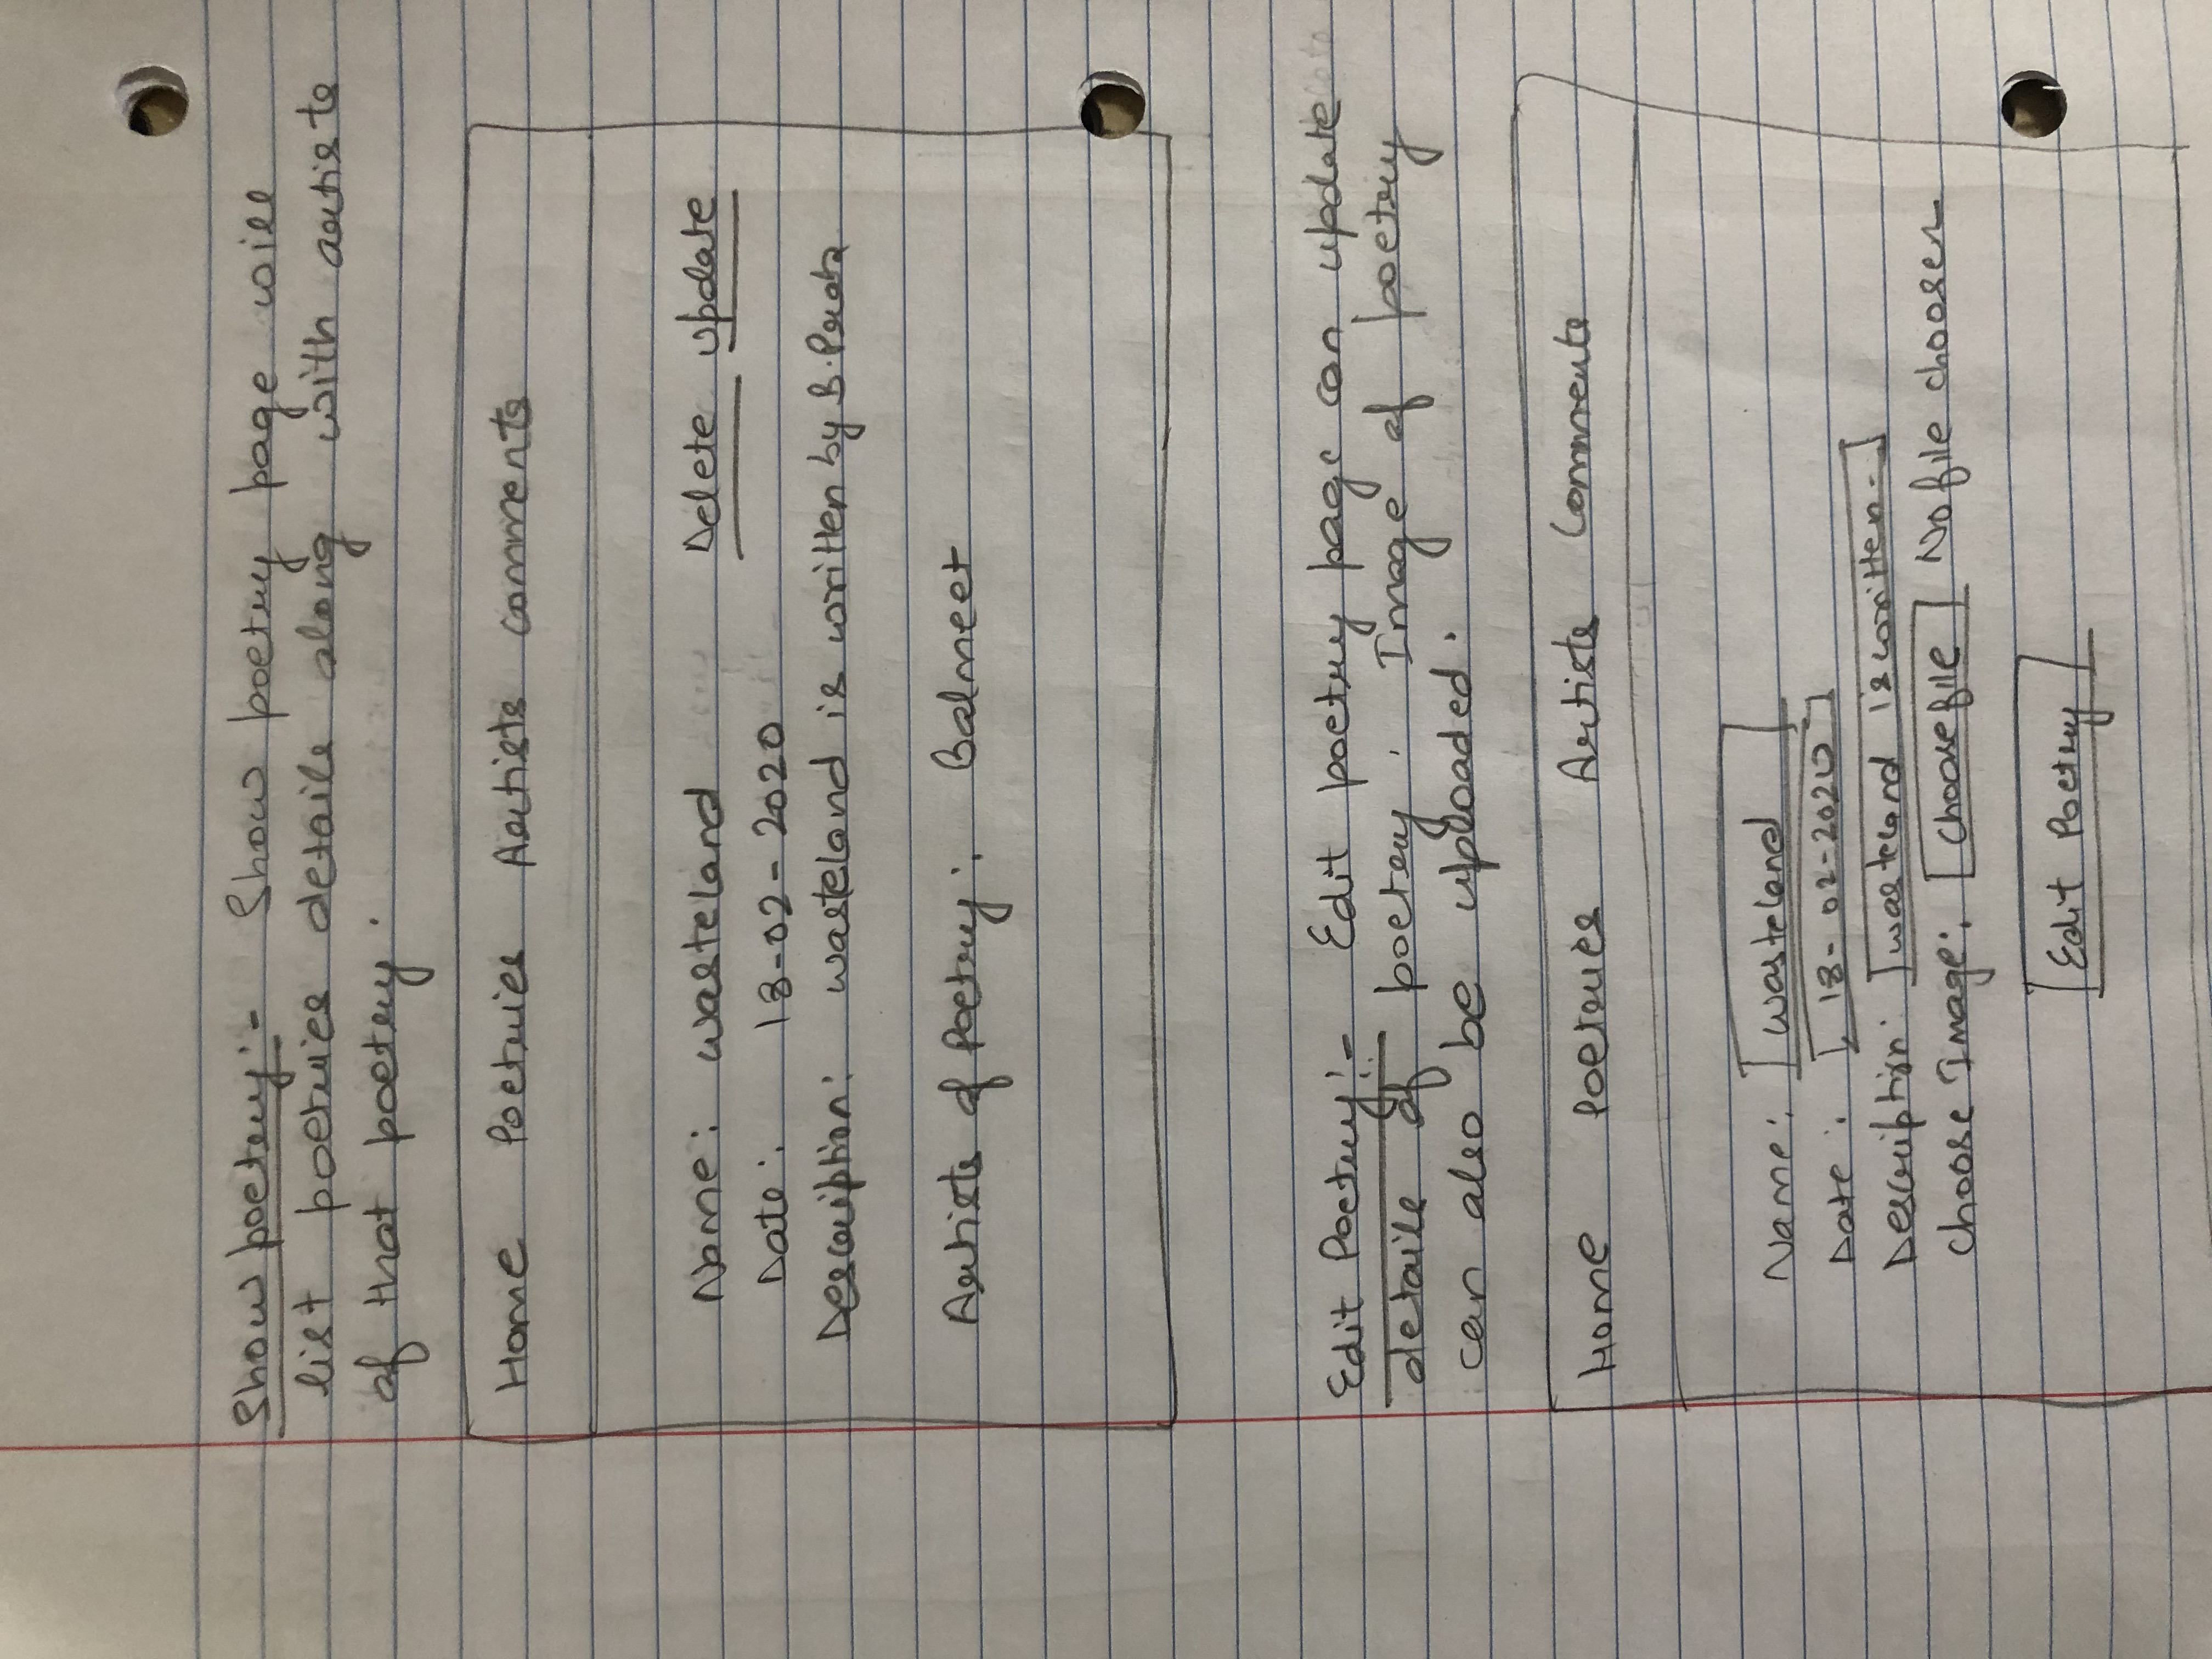 Show poetry:- Show poetry page will
list poetries details along with artists
of that poetry.
Home Poetries Artists comments
Name: wasteland Delete Update
Date: 18-02-2020
Description: wasteland is written by B.
Artists of Poetry: Balmeet
Edit Poetry:- Edit poetry page can update
details of poetry. Image of poetry
can also be uploaded.
Home Poetries Artists Comments
Name: Wasteland
Date: 18-02-2020
Description: wasteland is written-
Choose Image: Choose file No file choosen
Edit Poetry